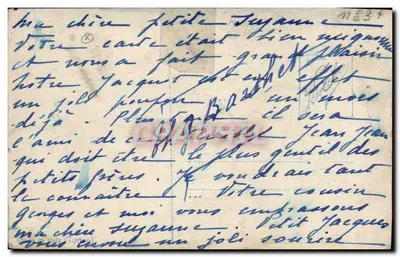 ma chère petite Suzanne
Votre carte était bien mignonne
et nous a fait grand plaisir
notre Jacques est en effet
un joli poupon un mois
déjà. Plus il sera
l'ami de Jean Jean
qui doit être le plus gentil des
petits frères. Je voudrais tant
le connaître... Votre cousin
Georges et moi vous embrassons
ma chère Suzanne. Petit Jacques
vous envoie un joli sourire